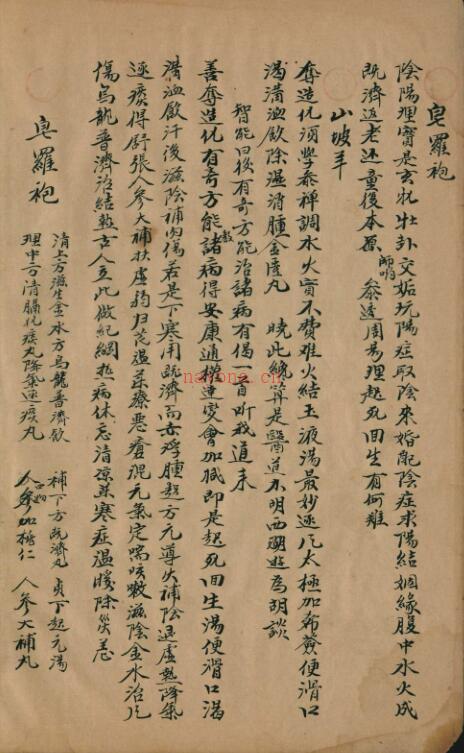 皂羅袍
陰陽理實是玄牝牡卦交姤坑陽症取陰來婚配陰症求陽結姻緣腹中水火成
既濟返老还童復本原師明參透周易理起死回生有何難
山坡羊
奪造化須學參禪調水火實不費难火結玉液湯最妙逐氕太極加芪便滑口
渴清血飲除濕消腫金匱丸 曉此統算是醫道不明西湖遊為胡談
智能曰後有奇方能治諸病有偈一首听我道來
善奪造化有奇方能教諸病得安康通權達变會加减即是起死回生湯便滑口渴
清血飲汗後滋陰補內傷若是下寒用既濟而赤浮腫起方元導火補陰退虛熱降氣
逐痰得舒張人參大補扶虛弱归芪過菜療悪瘡混元氣定喘咳嗽滋陰金水治
傷烏龍普濟治結熱古人立此做紀綱热病休忘清涼菜寒症温暖除災恙
皂羅袍
清上方滋生金水方烏龍普濟飲
理中方清膈化痰丸降氣逐痰丸
補下方既濟丸 貞下起元湯
人參加桃仁 人參大補丸